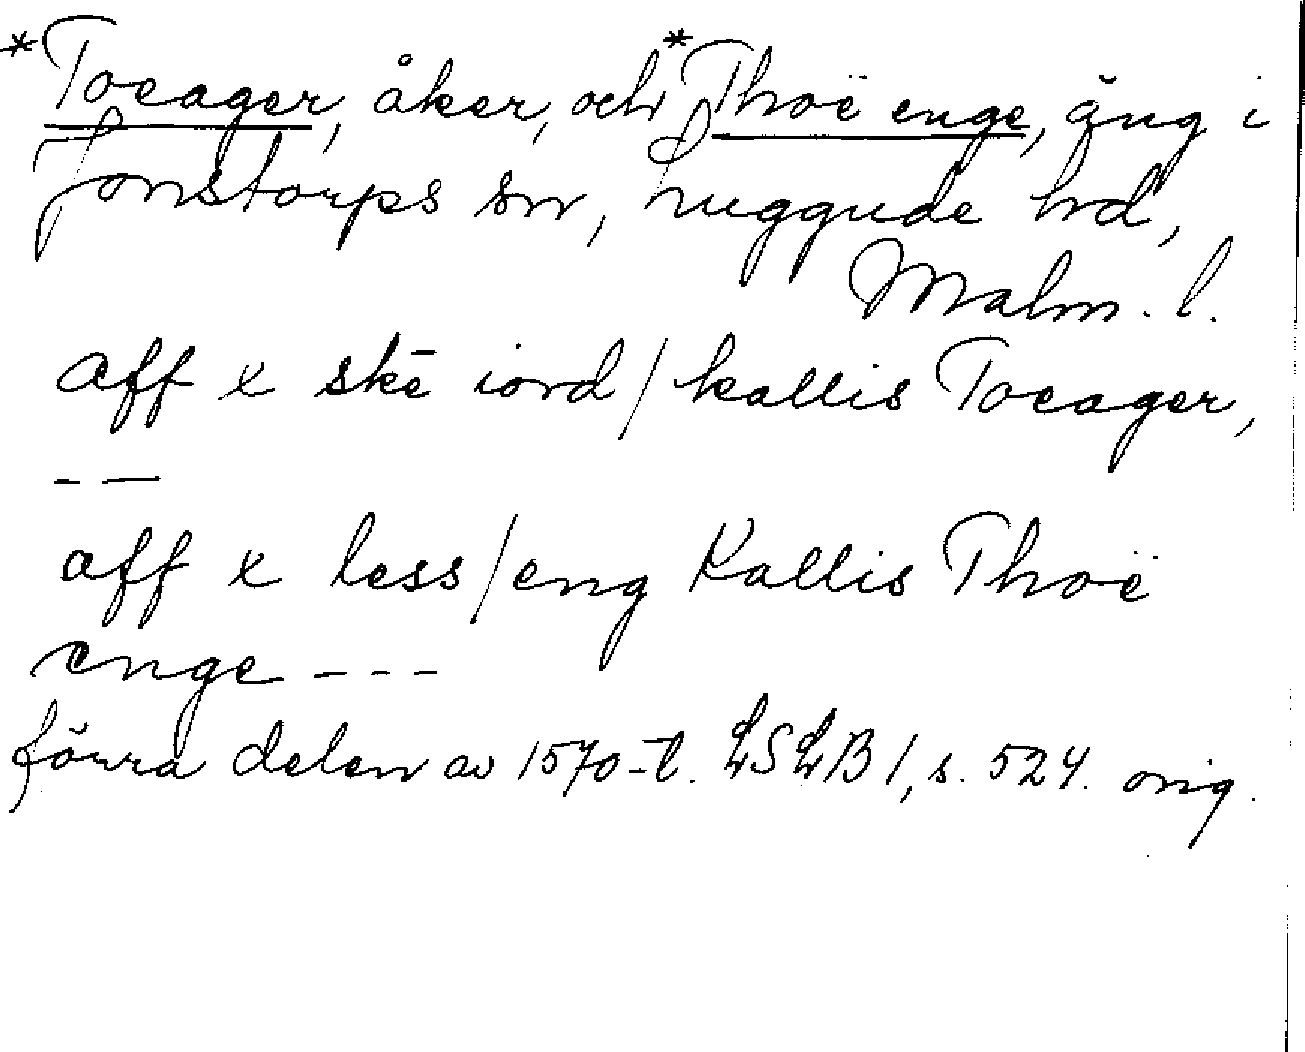 *Tocager, åker, och *Thoë enge, äng i
Jonstorps sn, Luggude hd,
Malm. l.
aff x skē iord / kallis Tocager,
- —
aff x less / eng Kallis Thoë
enge - - -
förra delen av 1570-t. LSLB 1, s. 524. orig.